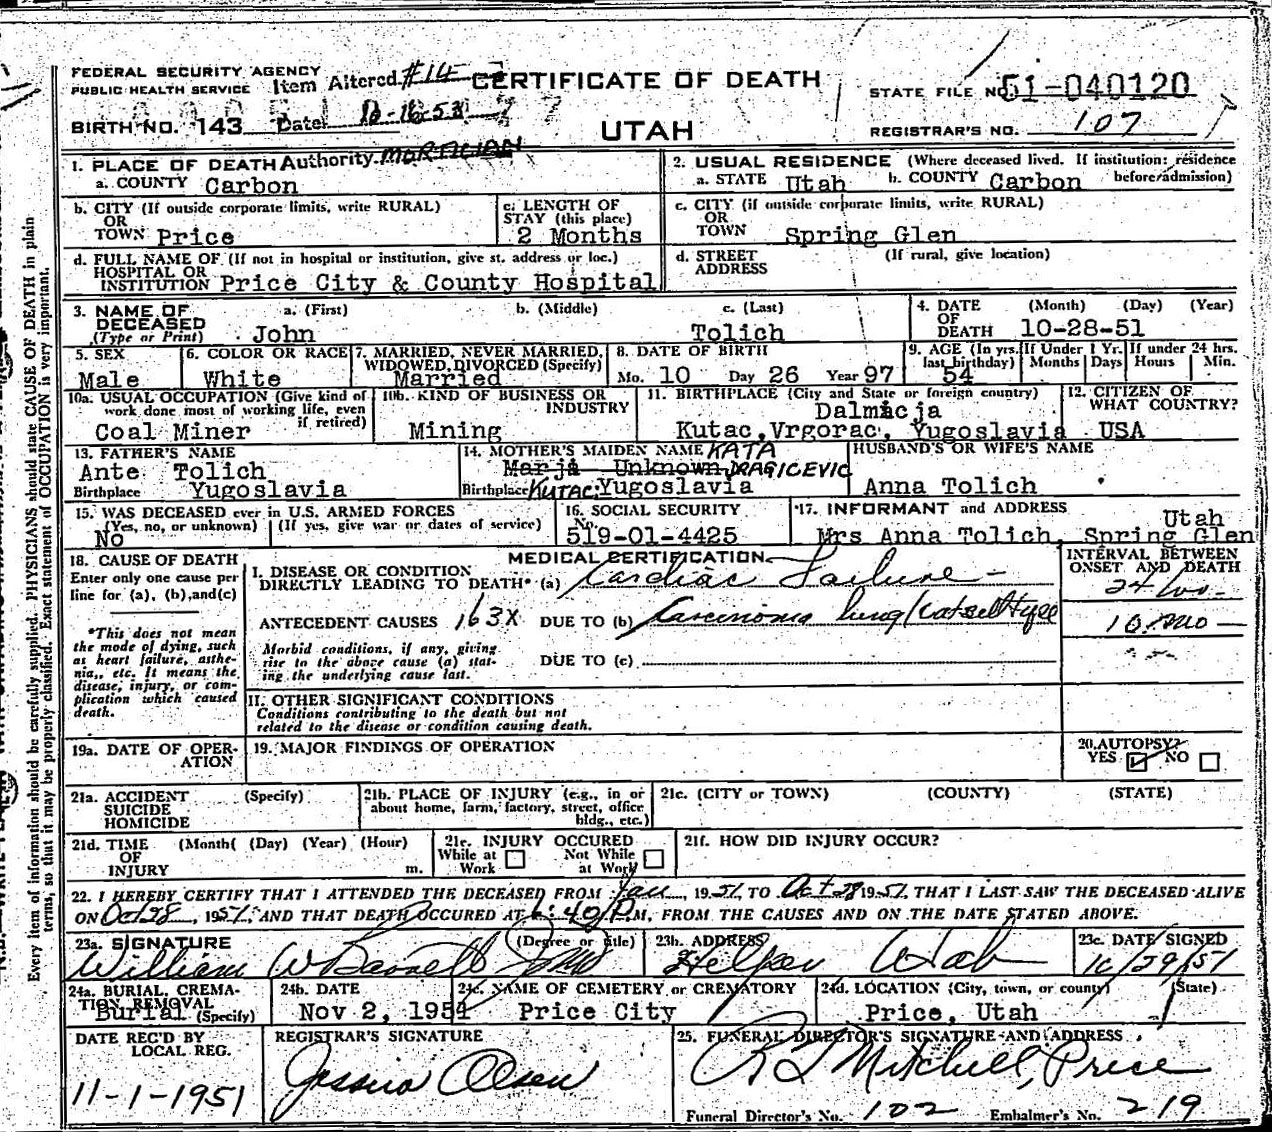 FEDERAL SECURITY AGENCY
PUBLIC HEALTH SERVICE
Item Altered #14
CERTIFICATE OF DEATH
STATE FILE NO. 51-040120
BIRTH NO. 143
Date: 10-16-53
UTAH
REGISTRAR'S NO. 107
1. PLACE OF DEATH
Authority. MORTICIAN
a. COUNTY Carbon
2. USUAL RESIDENCE (Where deceased lived. If institution: residence before/admission)
a. STATE Utah b. COUNTY Carbon
b. CITY (If outside corporate limits, write RURAL)
OR
TOWN Price
c. LENGTH OF
STAY (this place)
2 Months
c. CITY (if outside corporate limits, write RURAL)
OR
TOWN Spring Glen
d. FULL NAME OF (If not in hospital or institution, give st. address or loc.)
HOSPITAL OR
INSTITUTION Price City & County Hospital
d. STREET (If rural, give location)
ADDRESS
3. NAME OF a. (First) b. (Middle) c. (Last)
DECEASED
(Type or Print) John Tolich
4. DATE (Month) (Day) (Year)
OF
DEATH 10-28-51
5. SEX
Male
6. COLOR OR RACE
White
7. MARRIED, NEVER MARRIED,
WIDOWED, DIVORCED (Specify)
Married
8. DATE OF BIRTH
Mo. 10 Day 26 Year 97
9. AGE (In yrs. last birthday)
54
If Under 1 Yr.
Months Days
If under 24 hrs.
Hours Min.
10a. USUAL OCCUPATION (Give kind of
work done most of working life, even
if retired)
Coal Miner
10b. KIND OF BUSINESS OR
INDUSTRY
Mining
11. BIRTHPLACE (City and State or foreign country)
Dalmacja
Kutac, Vrgorac, Yugoslavia
12. CITIZEN OF
WHAT COUNTRY?
USA
13. FATHER'S NAME
Ante Tolich
Birthplace Yugoslavia
14. MOTHER'S MAIDEN NAME KATA
Marja Unknown DRAGICEVIC
Birthplace KUTAC, Yugoslavia
HUSBAND'S OR WIFE'S NAME
Anna Tolich
15. WAS DECEASED ever in U.S. ARMED FORCES
(Yes, no, or unknown) (If yes, give war or dates of service)
No
16. SOCIAL SECURITY
No.
519-01-4425
17. INFORMANT and ADDRESS
Utah
Mrs Anna Tolich, Spring Glen
18. CAUSE OF DEATH
Enter only one cause per
line for (a), (b), and (c)
*This does not mean
the mode of dying, such
as heart failure, asthe-
nia,, etc. It means the
disease, injury, or com-
plication which caused
death.
MEDICAL CERTIFICATION
I. DISEASE OR CONDITION
DIRECTLY LEADING TO DEATH* (a) Cardiac Failure -
ANTECEDENT CAUSES 163X DUE TO (b) Carcinoma lung
Morbid conditions, if any, giving
rise to the above cause (a) stat-
ing the underlying cause last.
DUE TO (c)
INTERVAL BETWEEN
ONSET AND DEATH
10 mo -
II. OTHER SIGNIFICANT CONDITIONS
Conditions contributing to the death but not
related to the disease or condition causing death.
19a. DATE OF OPER-
ATION
19. MAJOR FINDINGS OF OPERATION
20. AUTOPSY?
YES NO
21a. ACCIDENT (Specify)
SUICIDE
HOMICIDE
21b. PLACE OF INJURY (e.g., in or
about home, farm, factory, street, office
bldg., etc.)
21c. (CITY or TOWN) (COUNTY) (STATE)
21d. TIME (Month( (Day) (Year) (Hour)
OF
INJURY m.
21e. INJURY OCCURED
While at Work Not While at Work
21f. HOW DID INJURY OCCUR?
22. I HEREBY CERTIFY THAT I ATTENDED THE DECEASED FROM Jan, 1951, TO Oct 28 1951, THAT I LAST SAW THE DECEASED ALIVE
ON Oct 28, 1951. AND THAT DEATH OCCURED AT 6:40 P.M, FROM THE CAUSES AND ON THE DATE STATED ABOVE.
23a. SIGNATURE (Degree or title)
William W
23b. ADDRESS
Helper Utah
23c. DATE SIGNED
10/29/51
24a. BURIAL, CREMA-
TION, REMOVAL
Burial (Specify)
24b. DATE
Nov 2, 1951
24c. NAME OF CEMETERY or CREMATORY
Price City
24d. LOCATION (City, town, or county) (State)
Price, Utah
DATE REC'D BY
LOCAL REG.
11-1-1951
REGISTRAR'S SIGNATURE
Jessica Olsen
25. FUNERAL DIRECTOR'S SIGNATURE AND ADDRESS
R L Mitchell, Price
Funeral Director's No. 102 Embalmer's No. 219
Every item of information should be carefully supplied. PHYSICIANS should state CAUSE OF DEATH in plain
terms, so that it may be properly classified. Exact statement of OCCUPATION is very important.